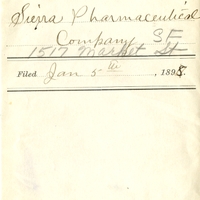 Sierra Pharmaceutical
Company SF
1517 Market St
Filed Jan 5th, 1898.